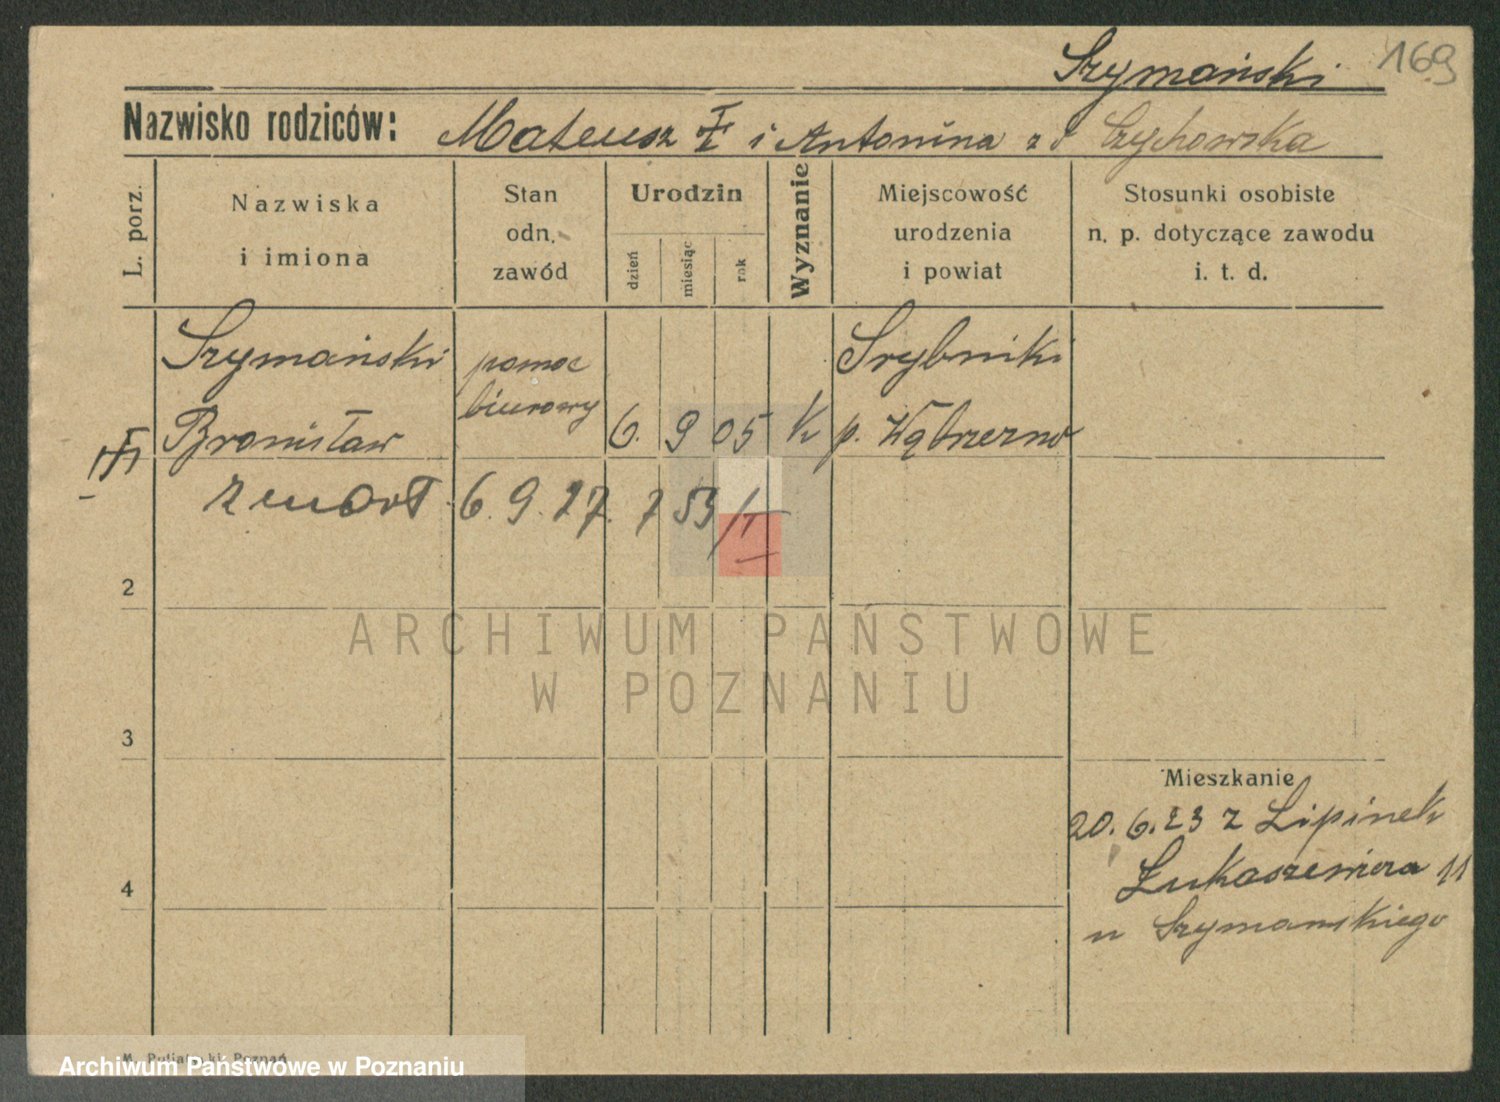 169
Szymański
Nazwisko rodziców: Mateusz i Antonina z d Szychowska
L. porz.
Nazwiska
i imiona
Stan
odn.
zawód
Urodzin
dzień
miesiąc
rok
Wyznanie
Miejscowość
urodzenia
i powiat
Stosunki osobiste
n. p. dotyczące zawodu
i. t. d.
Szymański pomoc
Bronisław biurowy 6. 9 05 k p. Wąbrzeźno
zmarł 6. 9. 27. 753/II
2
ARCHIWUM PAŃSTWOWE
W POZNANIU
3
Mieszkanie
20. 6. 23 z Lipinek
4
Łukaszewicza 11
u Szymańskiego
Archiwum Państwowe w Poznaniu